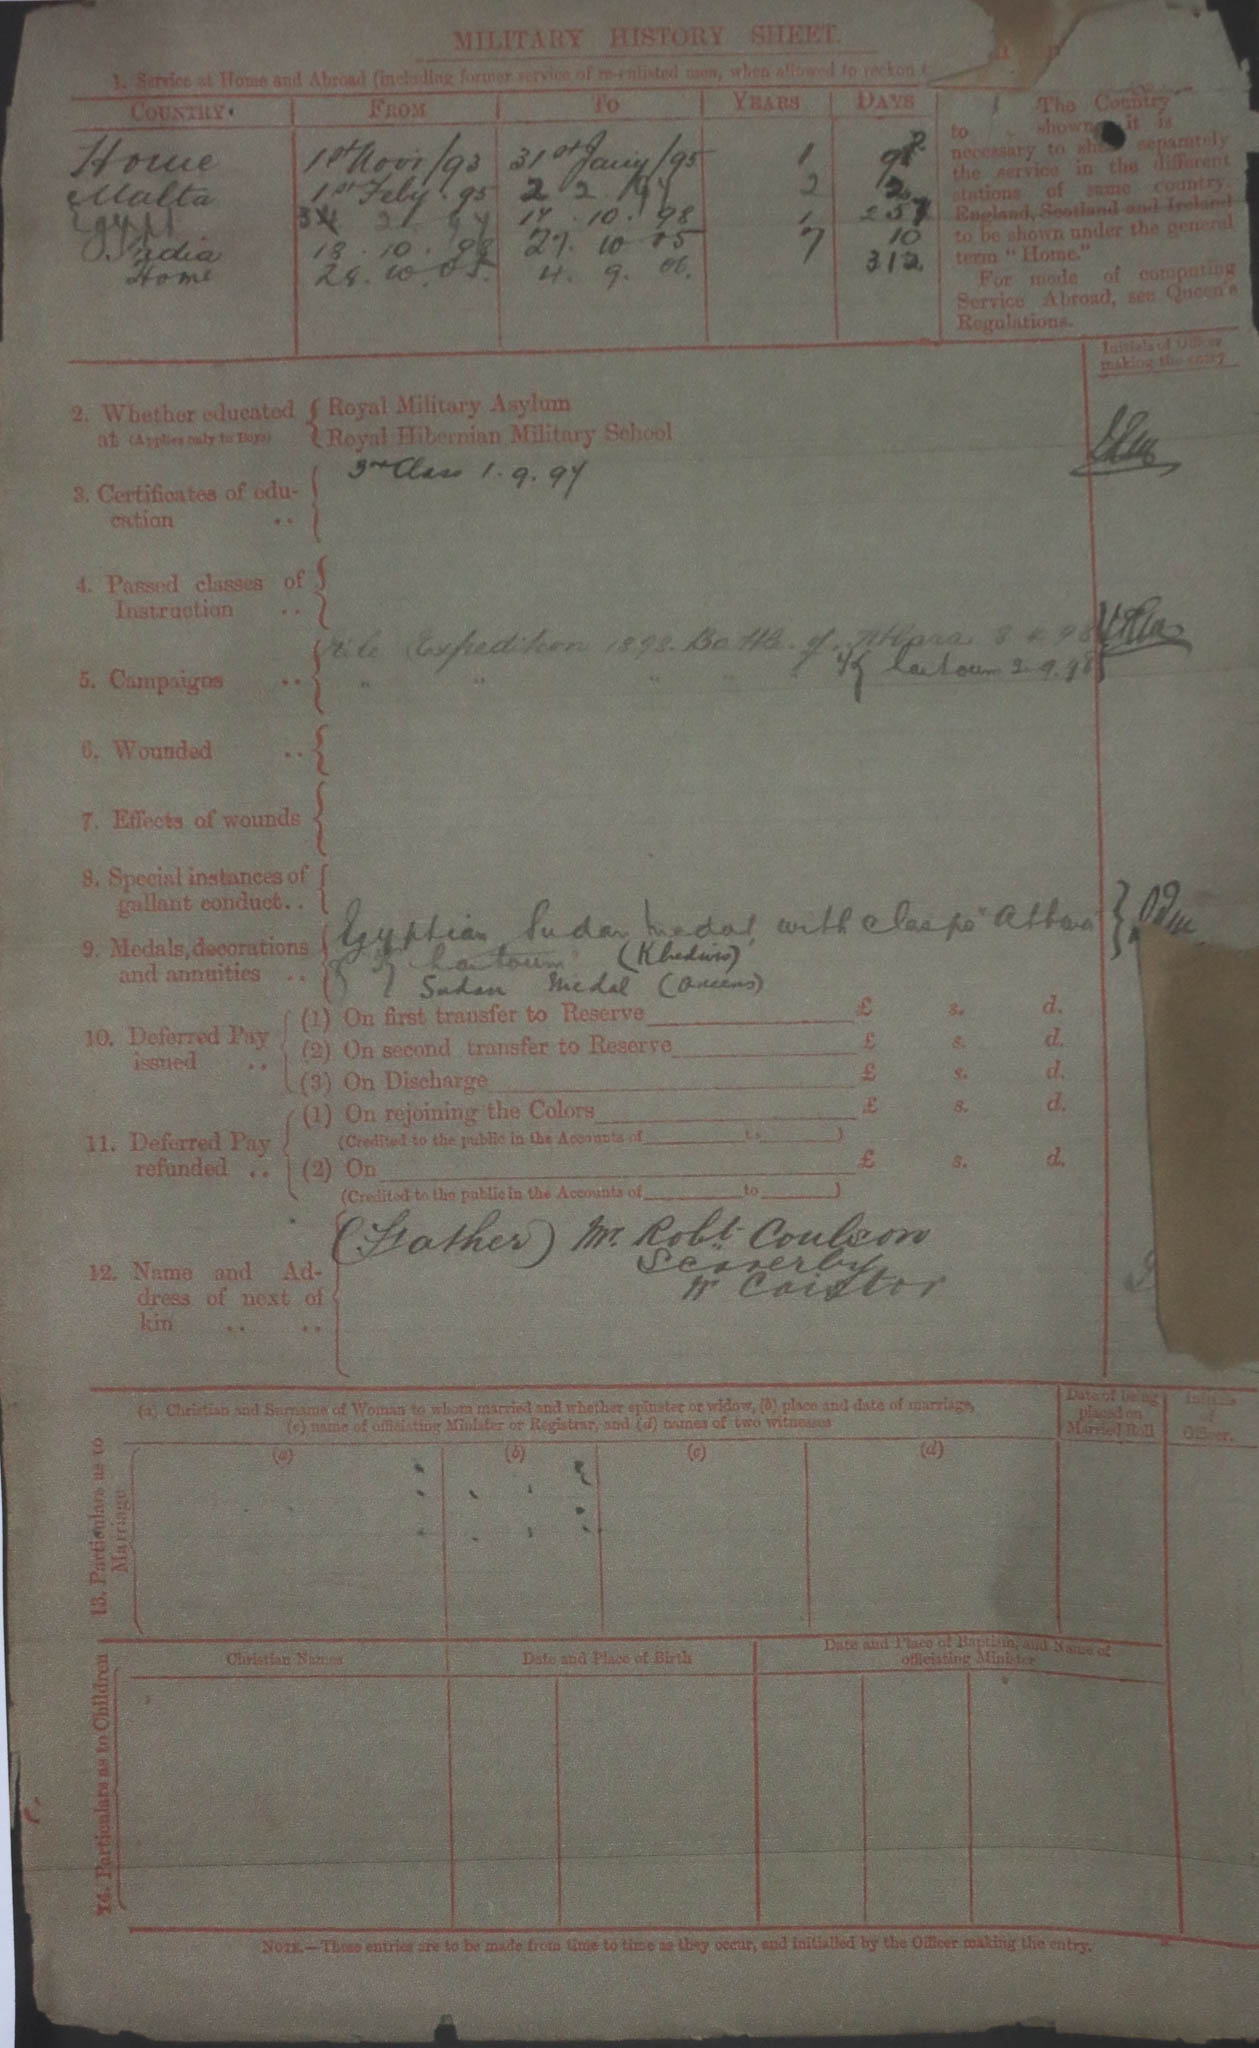 MILITARY HISTORY SHEET.
1. Service at Home and Abroad (including former service of re-enlisted men, when allowed to reckon
COUNTRY. FROM TO YEARS DAYS
Home 1st Novr/93 31st Jany/95 1
Malta 1st Feby. 95 2 2 97 2 2
Egypt 3 2 97 17. 10. 98 1 257
India 18. 10. 98 27. 10 05 7 10
Home 28. 10. 05. 4. 9. 06. 312
The Country
to shown it is
necessary to show separately
the service in the different
stations of same country.
England, Scotland and Ireland
to be shown under the general
term "Home."
For mode of computing
Service Abroad, see Queen's
Regulations.
Initials of Officer
making the entry
2. Whether educated { Royal Military Asylum
at (Applies only to Boys) { Royal Hibernian Military School
3rd Class 1. 9. 97
3. Certificates of edu-
cation ..
4. Passed classes of
Instruction ..
Nile Expedition 1898. Battle of Atbara 8 4 98
5. Campaigns .. " " " " " Khartoum 2. 9. 98
6. Wounded ..
7. Effects of wounds
8. Special instances of
gallant conduct..
Egyptian Sudan Medal, with clasps "Atbara"
9. Medals, decorations
and annuities .. Khartoum" (Khedives)
Sudan Medal (Queens)
10. Deferred Pay issued .. (1) On first transfer to Reserve £ s. d.
(2) On second transfer to Reserve £ s. d.
(3) On Discharge £ s. d.
11. Deferred Pay refunded .. (1) On rejoining the Colors £ s. d.
(Credited to the public in the Accounts of to )
(2) On £ s. d.
(Credited to the public in the Accounts of to )
(Father) Mr. Robt. Coulson
12. Name and Ad-
dress of next of
kin .. ..
Nr Caistor
13. Particulars as to Marriage
(a) Christian and Surname of Woman to whom married and whether spinster or widow, (b) place and date of marriage,
(c) name of officiating Minister or Registrar, and (d) names of two witnesses
Date of being
placed on
Married Roll
Initials
of
Officer.
(a) (b) (c) (d)
14. Particulars as to Children
Christian Names Date and Place of Birth Date and Place of Baptism, and Name of
officiating Minister
NOTE.—These entries are to be made from time to time as they occur, and initialled by the Officer making the entry.